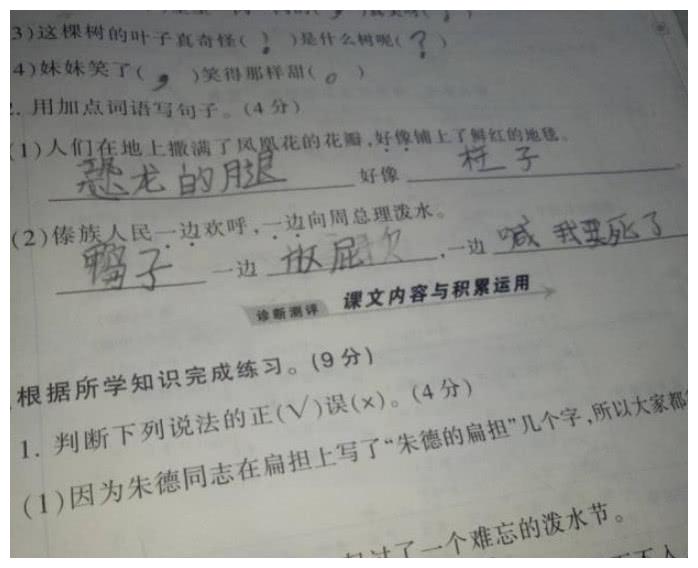 3)这棵树的叶子真奇怪(！)是什么树呢(？)
4)妹妹笑了(，)笑得那样甜(。)
2.用加点词语写句子。(4分)
(1)人们在地上撒满了凤凰花的花瓣,好像铺上了鲜红的地毯。
恐龙的腿 好像 柱子
(2)傣族人民一边欢呼,一边向周总理泼水。
一边 ,一边 喊我要死了
诊断测评 课文内容与积累运用
根据所学知识完成练习。(9分)
1.判断下列说法的正(√)误(×)。(4分)
(1)因为朱德同志在扁担上写了“朱德的扁担”几个字,所以大家都
过了一个难忘的泼水节。